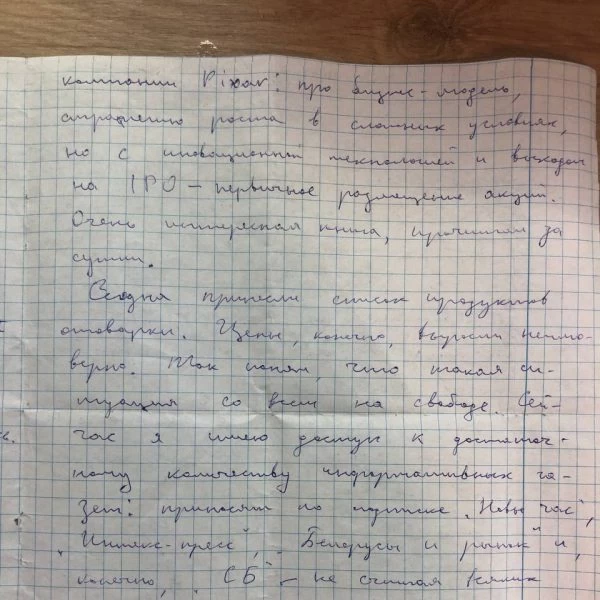 компании Pixar: про бизнес-модель,
стратегию роста в сложных условиях,
но с инновационной технологией и выходом
на IPO – первичное размещение акций.
Очень интересная книга, прочитал за
сутки.
Сегодня принесли список продуктов
отоварки. Цены, конечно, выросли неимо-
верно. Так понял, что такая си-
туация со всем на свободе. Сей-
час я имею доступ к достаточ-
ному количеству информативных га-
зет: приносят по подписке „Новы час",
„Интэкс-пресс", „Белорусы и рынок" и,
конечно, „СБ" – не считая всяких